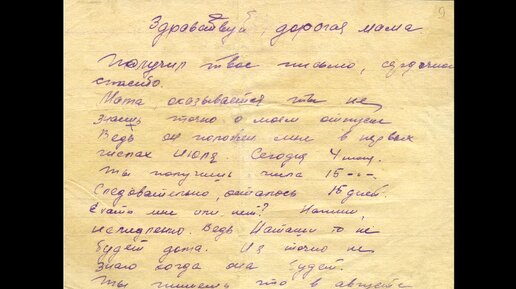 9
Здравствуй, дорогая мама.
Получил твое письмо, сердечное
спасибо.
Мама, оказывается ты не
знаешь точно о моем отпуске
Ведь он положен мне в первых
числах июля. Сегодня 4 июня.
Ты получишь числа 15
Следовательно, осталось 15 дней.
Ехать мне или нет? Напиши,
немедленно. Ведь Наташи то не
будет дома. Из точно не
знаю когда она будет.
Ты пишешь что в августе